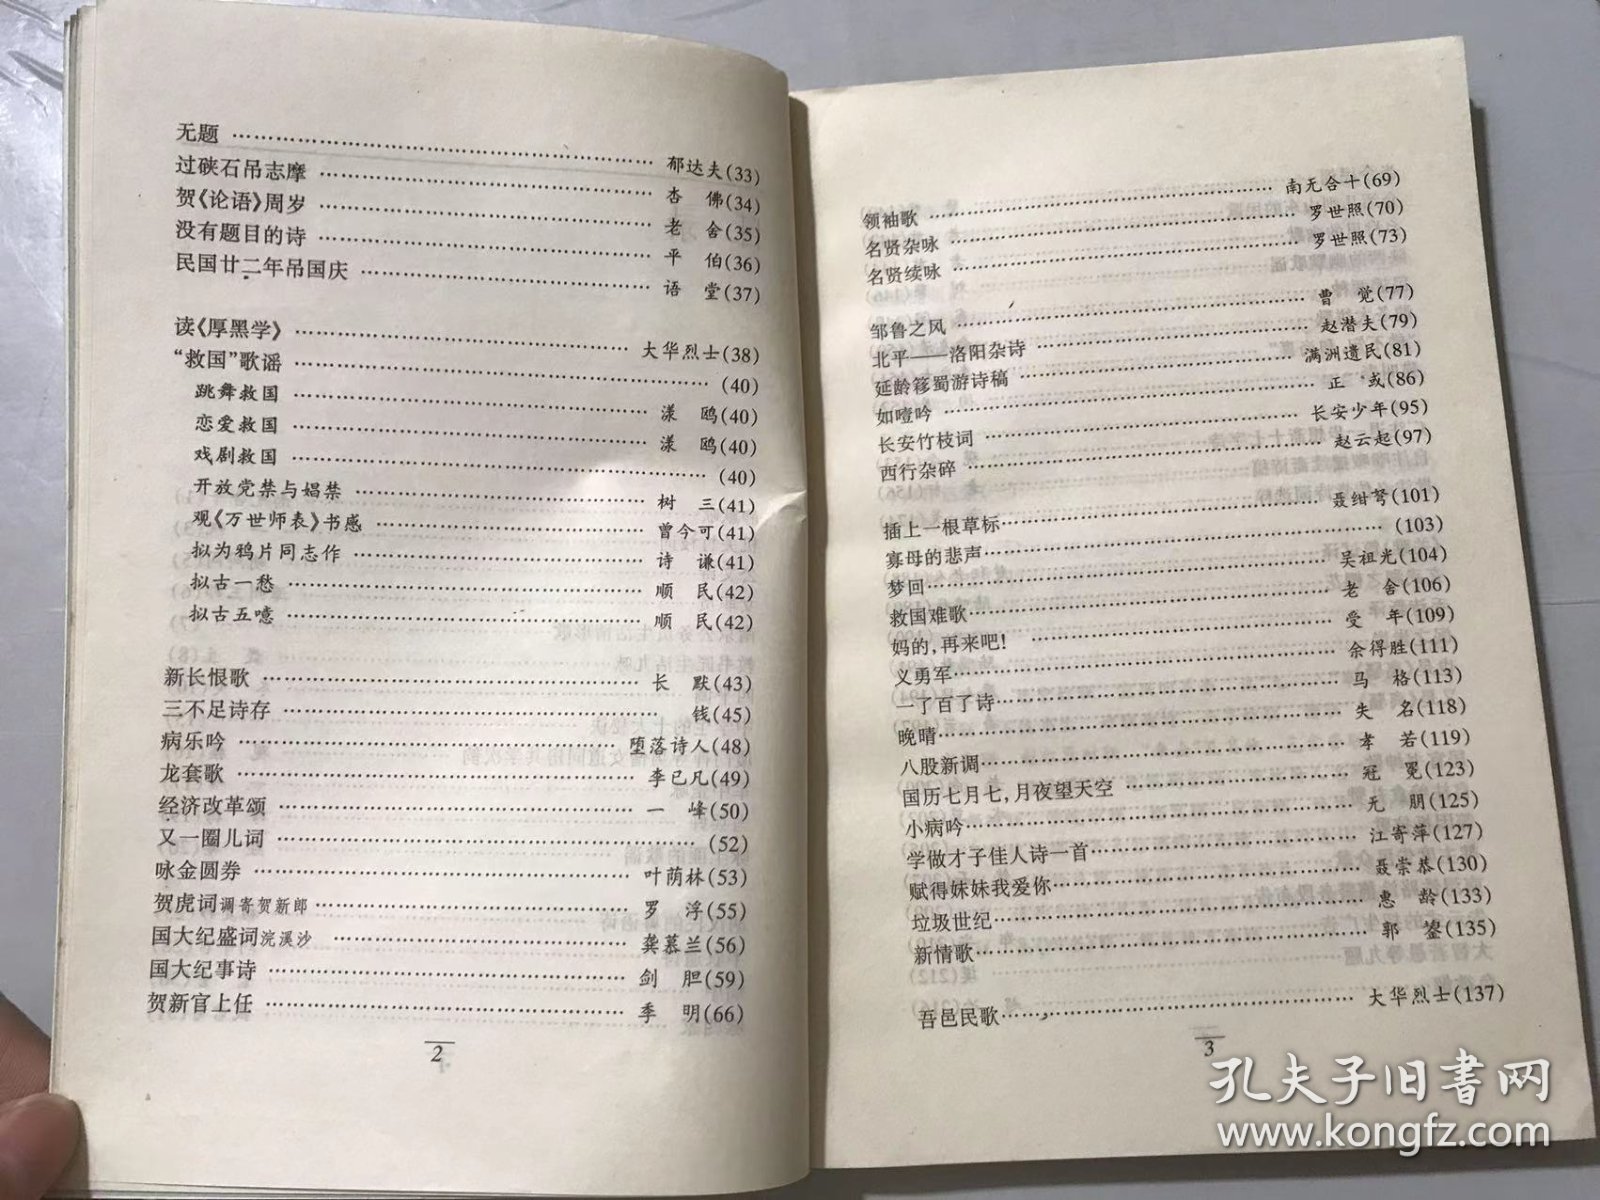 无题 …… 郁达夫(33)
过硖石吊志摩 …… 杏　佛(34)
贺《论语》周岁 …… 老　舍(35)
没有题目的诗 …… 平　伯(36)
民国廿二年吊国庆 …… 语　堂(37)
读《厚黑学》 …… 大华烈士(38)
“救国”歌谣 …… (40)
跳舞救国 …… 漾　鸥(40)
恋爱救国 …… 漾　鸥(40)
戏剧救国 …… (40)
开放党禁与娼禁 …… 树　三(41)
观《万世师表》书感 …… 曾今可(41)
拟为鸦片同志作 …… 诗　谦(41)
拟古一愁 …… 顺　民(42)
拟古五噫 …… 顺　民(42)
新长恨歌 …… 长　默(43)
三不足诗存 …… 钱(45)
病乐吟 …… 堕落诗人(48)
龙套歌 …… 李已凡(49)
经济改革颂 …… 一　峰(50)
又一圈儿词 …… (52)
咏金圆券 …… 叶荫林(53)
贺虎词调寄贺新郎 …… 罗　浮(55)
国大纪盛词浣溪沙 …… 龚慕兰(56)
国大纪事诗 …… 剑　胆(59)
贺新官上任 …… 季　明(66)
2
领袖歌 …… 南无合十(69)
名贤杂咏 …… 罗世照(70)
名贤续咏 …… 罗世照(73)
邹鲁之风 …… 曹　觉(77)
北平——洛阳杂诗 …… 赵潜夫(79)
延龄簃蜀游诗稿 …… 满洲遗民(81)
如噎吟 …… 正　或(86)
长安竹枝词 …… 长安少年(95)
西行杂碎 …… 赵云起(97)
插上一根草标 …… 聂绀弩(101)
寡母的悲声 …… (103)
梦回 …… 吴祖光(104)
救国难歌 …… 老　舍(106)
妈的,再来吧! …… 受　年(109)
义勇军 …… 余得胜(111)
一了百了诗 …… 马　格(113)
晚晴 …… 失　名(118)
八股新调 …… 孝　若(119)
国历七月七,月夜望天空 …… 冠　冕(123)
小病吟 …… 无　朋(125)
学做才子佳人诗一首 …… 江寄萍(127)
赋得妹妹我爱你 …… 聂崇恭(130)
垃圾世纪 …… 惠　龄(133)
新情歌 …… 郭　鋆(135)
吾邑民歌 …… 大华烈士(137)
3
孔夫子旧书网
www.kongfz.com